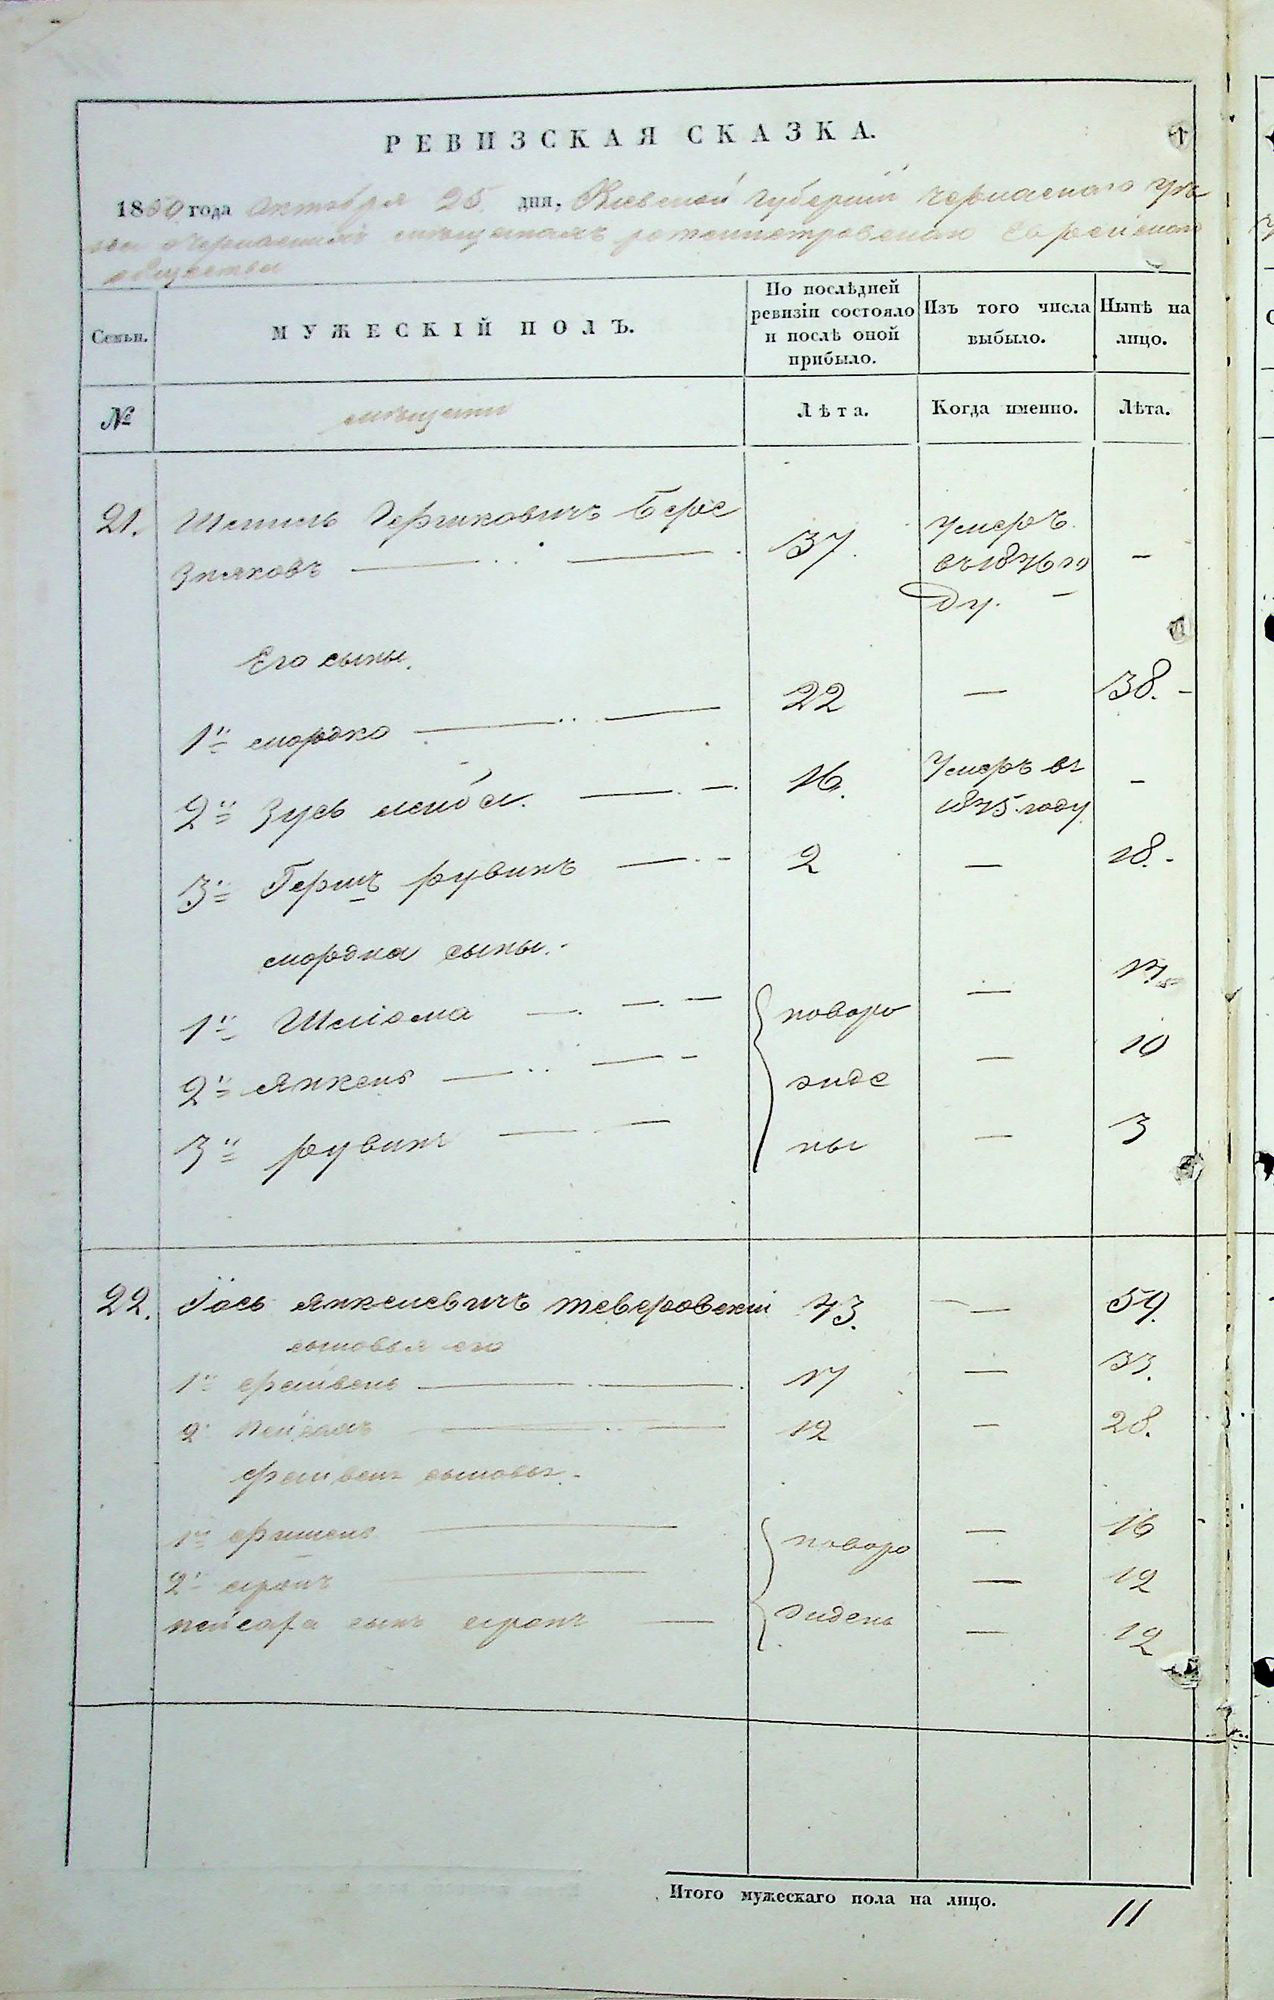 РЕВИЗСКАЯ СКАЗКА.
1850 года Октября 25 дня, Киевской Губернии Черкаского уѣз
Еврейскаго
общества
Семьи. МУЖЕСКІЙ ПОЛЪ. По послѣдней ревизіи состояло и послѣ оной прибыло. Изъ того числа выбыло. Нынѣ на лицо.
№ мѣщане Лѣта. Когда именно. Лѣта.
21. Шмиль Гершковичъ Бере
зняковъ 37. Умеръ въ 1846 го
ду. —
Его сыны.
1й мордко 22 — 38.
2й Зусь лейба. 16. Умеръ въ 1845 году —
3й Гершъ рувинъ 2 — 18.
мордка сыны.
1й Шліома новоро — 17
2й Янкель жде — 10
3й рувин ны — 3
22. Іось Янкелевичъ тверовскій 43. — 59.
сыновья его
1й файвель 17 — 33.
2 пейсахъ 12 — 28.
файвеля сыновья
1й фишель новоро — 16
2й сроль — 12
пейсаха сынъ сроль жденъ — 12
Итого мужескаго пола на лицо. 11